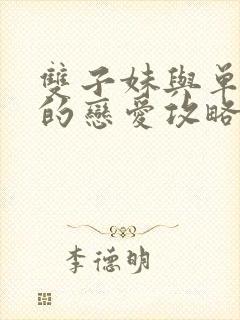 雙子妹與單
的戀愛攻略
李德明